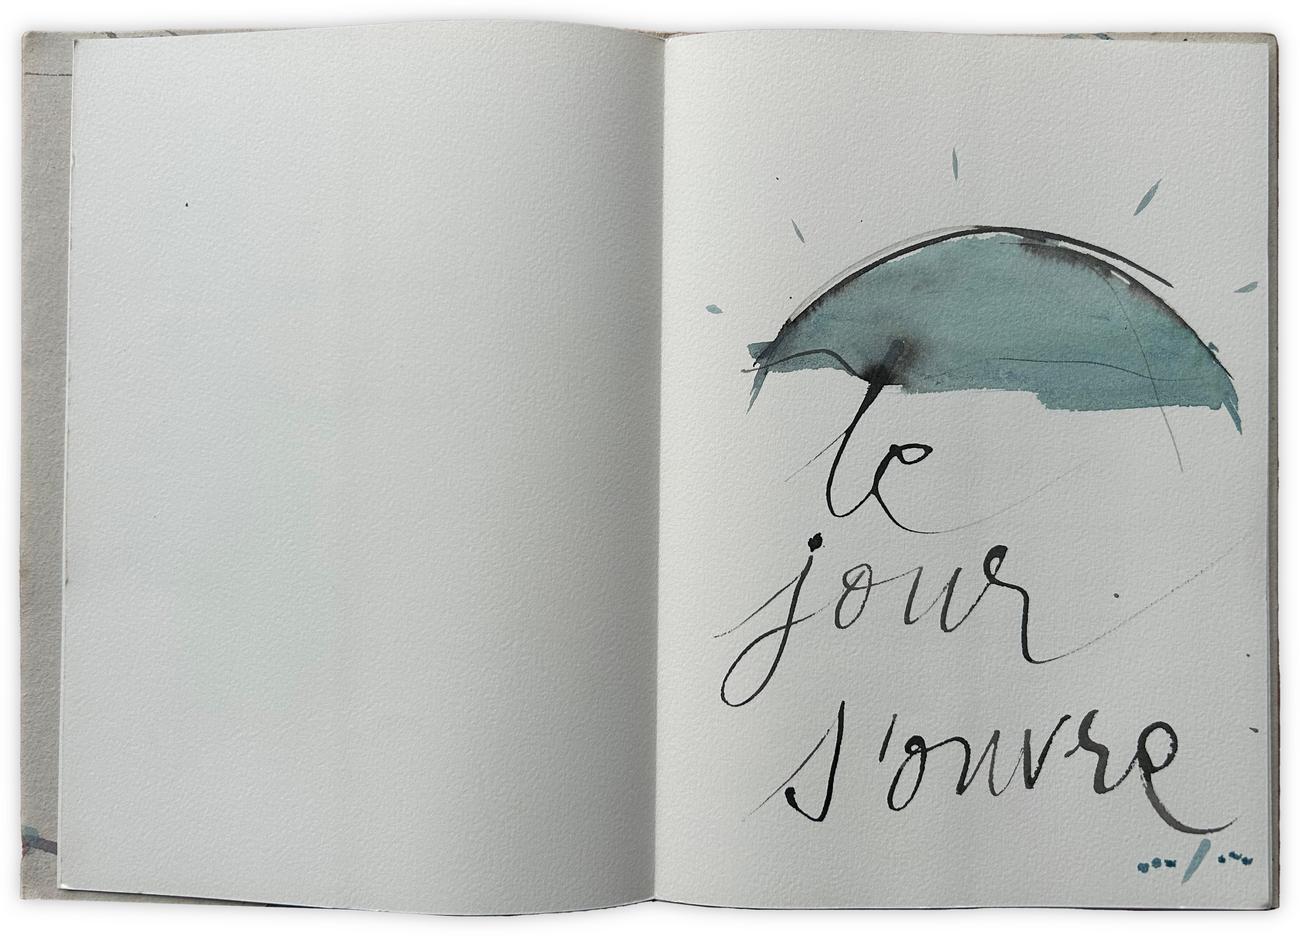 le
jour
s'ouvre